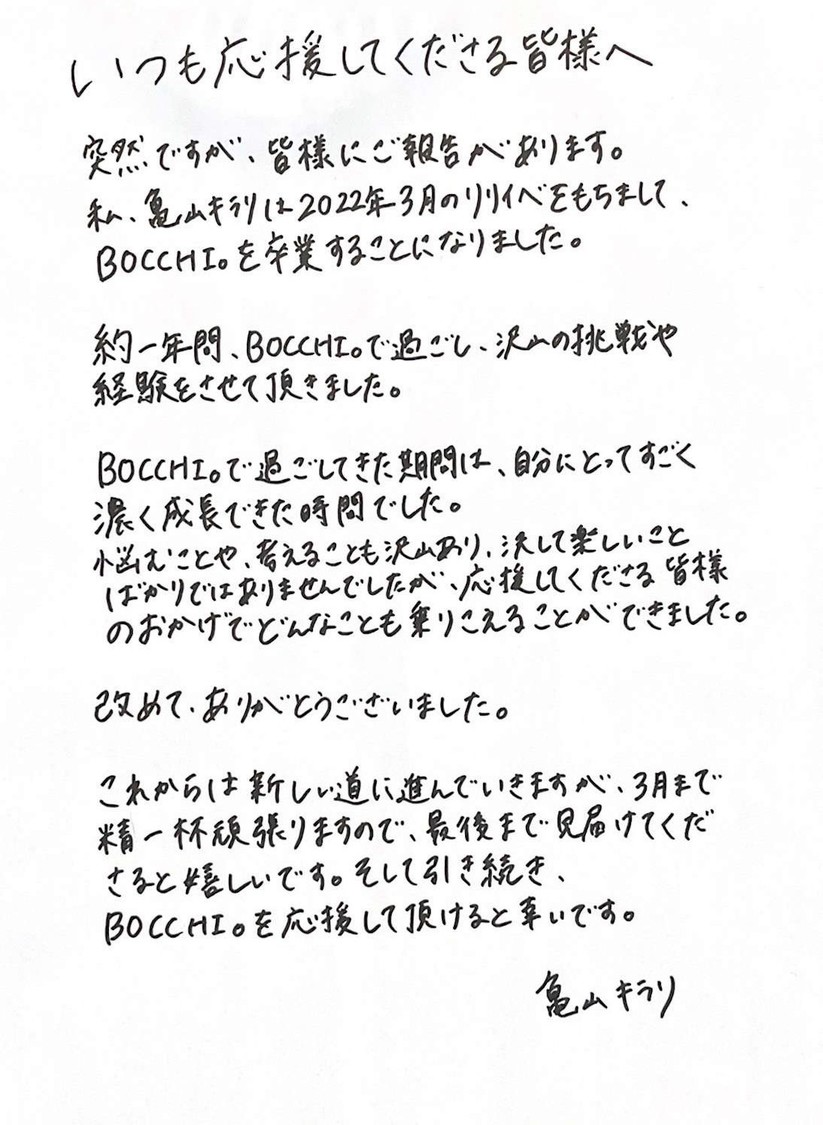 いつも応援してくださる皆様へ
突然ですが、皆様にご報告があります。
私、亀山キラリは2022年3月のリリイベをもちまして、
BOCCHI。を卒業することになりました。
約一年間、BOCCHI。で過ごし、沢山の挑戦や
経験をさせて頂きました。
BOCCHI。で過ごしてきた期間は、自分にとってすごく
濃く成長できた時間でした。
悩むことや、考えることも沢山あり、決して楽しいこと
ばかりではありませんでしたが、応援してくださる皆様
のおかげでどんなことも乗りこえることができました。
改めて、ありがとうございました。
これからは新しい道に進んでいきますが、3月まで
精一杯頑張りますので、最後まで見届けてくだ
さると嬉しいです。そして引き続き、
BOCCHI。を応援して頂けると幸いです。
亀山キラリ